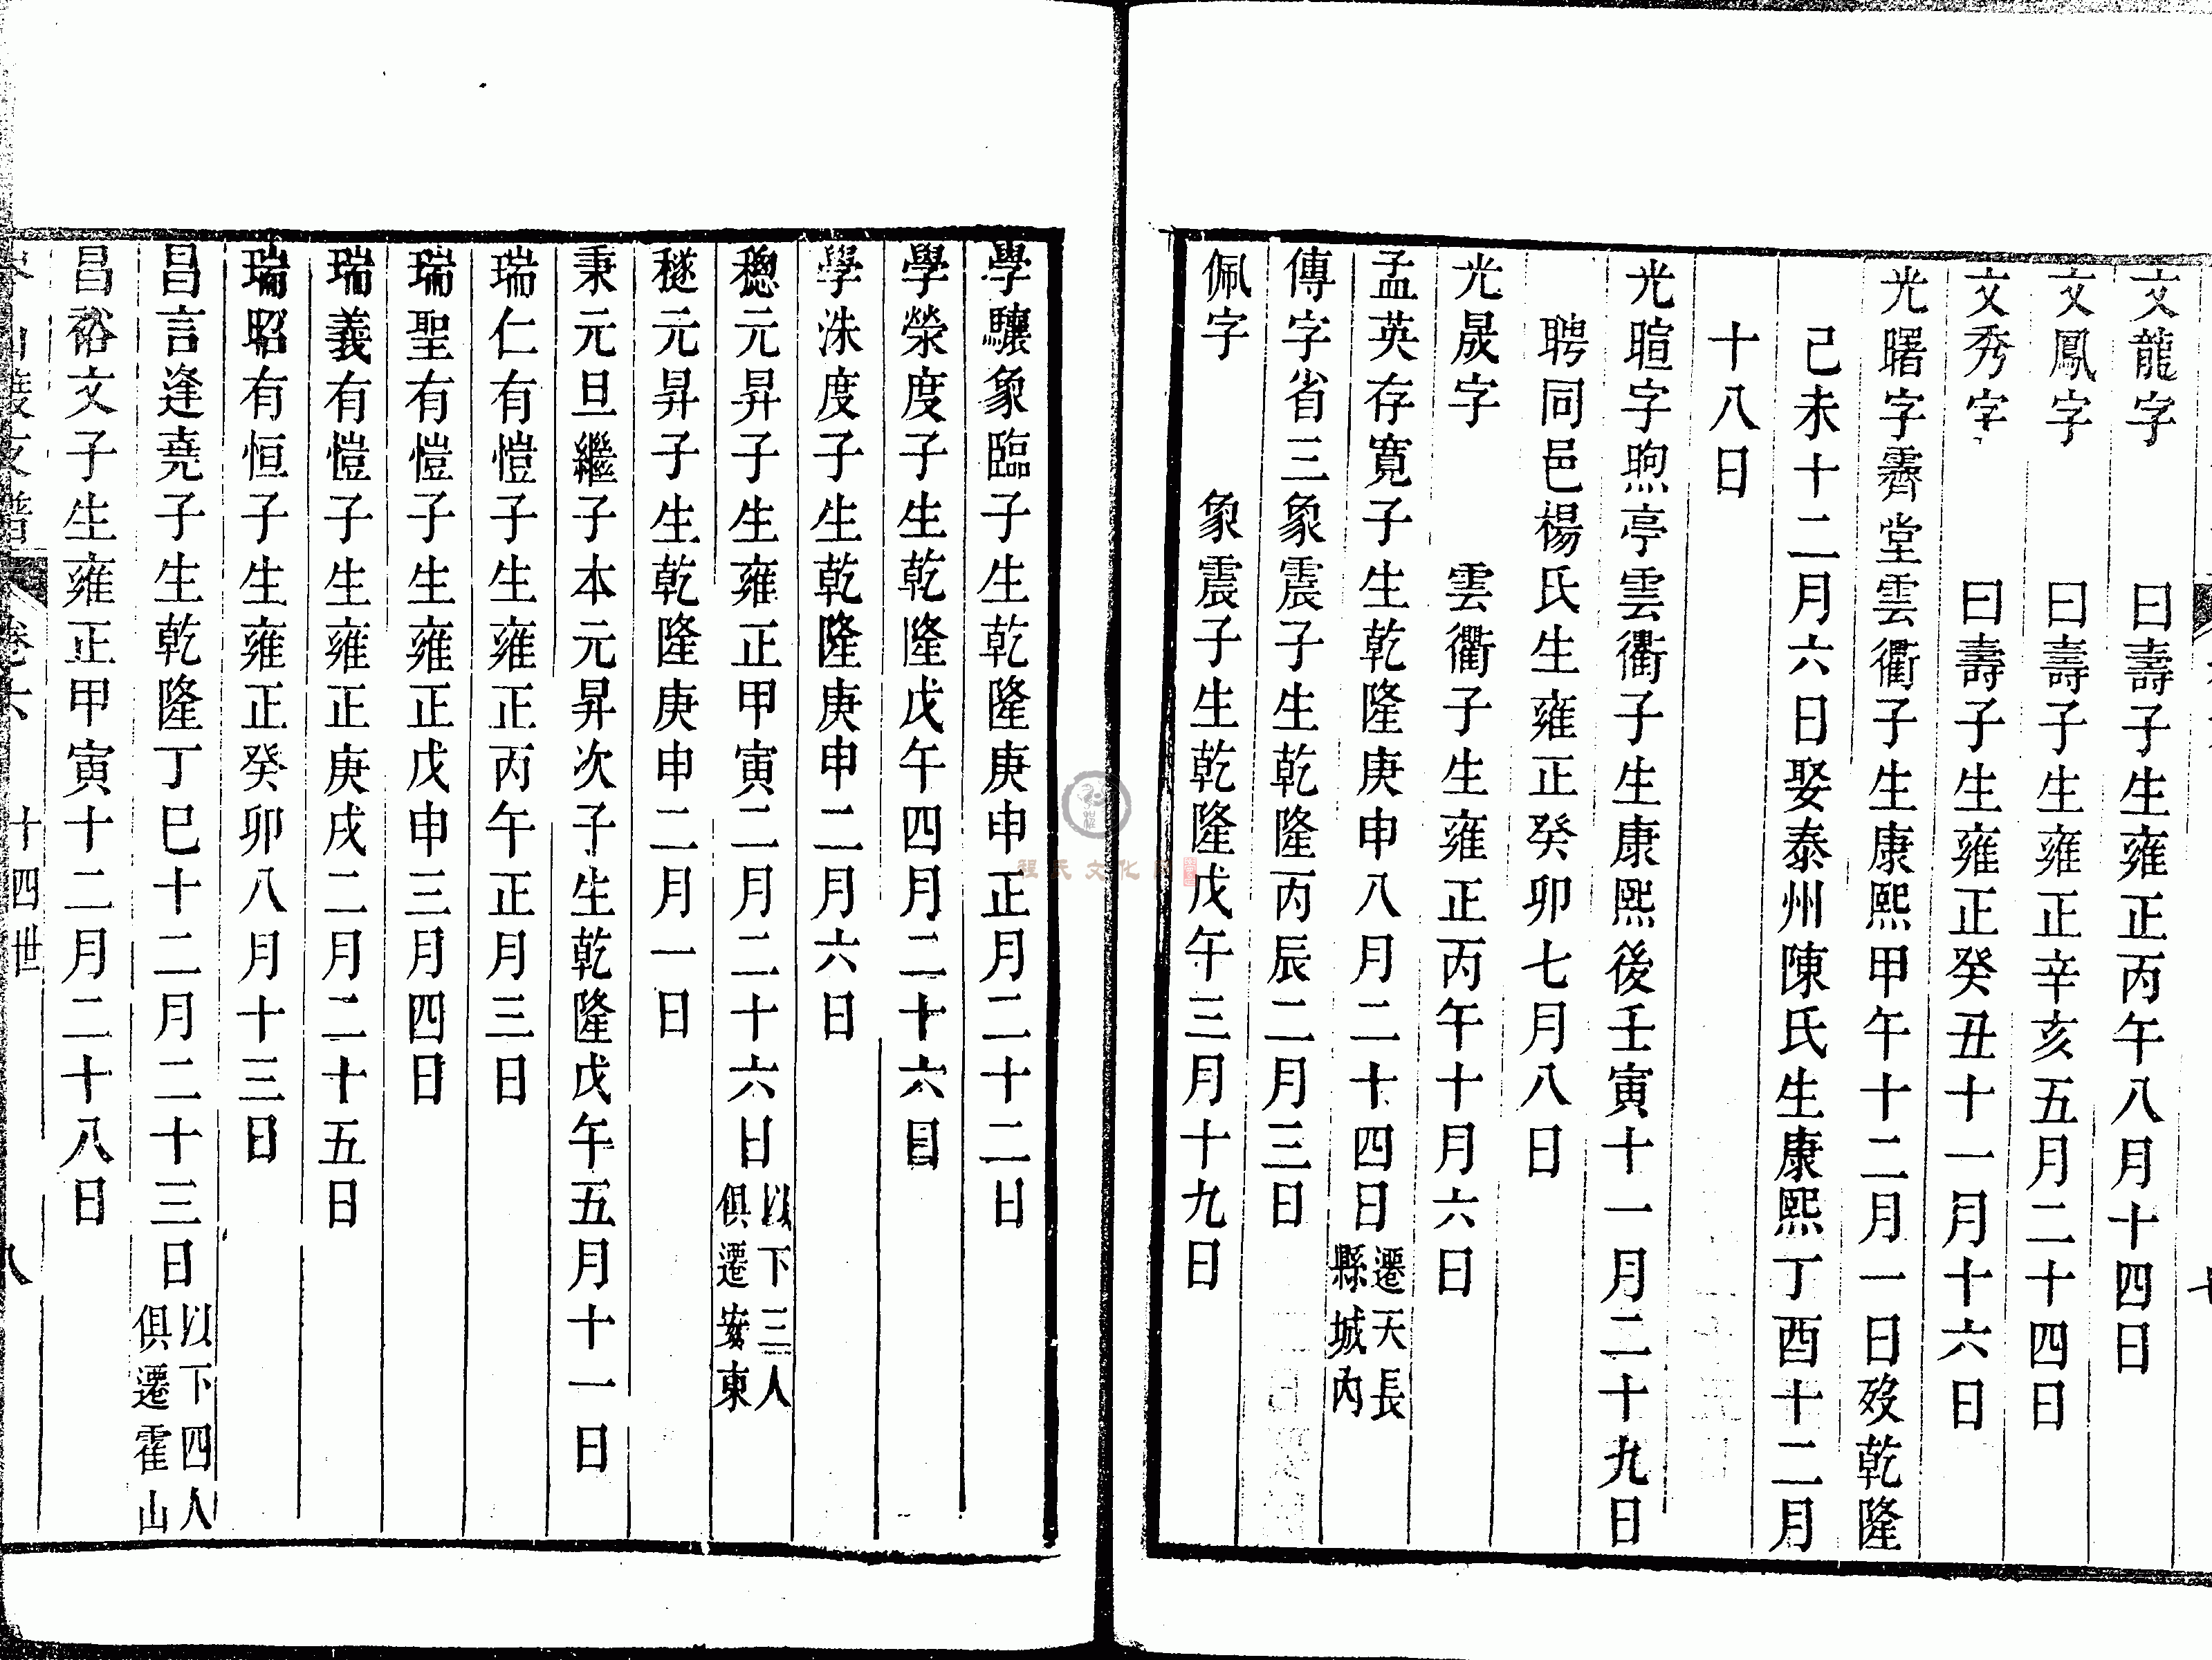 文龍字 曰壽子生雍正丙午八月十四日
文鳳字 曰壽子生雍正辛亥五月二十四日
文秀字 曰壽子生雍正癸丑十一月十六日
光曙字霽堂雲衢子生康熙甲午十二月一日歿乾隆
己未十二月六日娶泰州陳氏生康熙丁酉十二月
十八日
光暄字煦亭雲衢子生康熙後壬寅十一月二十九日
聘同邑楊氏生雍正癸卯七月八日
光晟字 雲衢子生雍正丙午十月六日
孟英存寬子生乾隆庚申八月二十四日遷天長
縣城內
傳字省三象震子生乾隆丙辰二月三日
佩字 象震子生乾隆戊午三月十九日
學驤象臨子生乾隆庚申正月二十二日
學滎度子生乾隆戊午四月二十六日
學洙度子生乾隆庚申二月六日
穗元昇子生雍正甲寅二月二十六日以下三人
俱遷安東
穟元昇子生乾隆庚申二月一日
秉元旦繼子本元昇次子生乾隆戊午五月十一日
瑞仁有愷子生雍正丙午正月三日
瑞聖有愷子生雍正戊申三月四日
瑞義有愷子生雍正庚戌二月二十五日
瑞昭有恒子生雍正癸卯八月十三日
昌言逢堯子生乾隆丁巳十二月二十三日以下四人
俱遷霍山
昌裕文子生雍正甲寅十二月二十八日
支譜 卷六 十四世 八
程氏文化